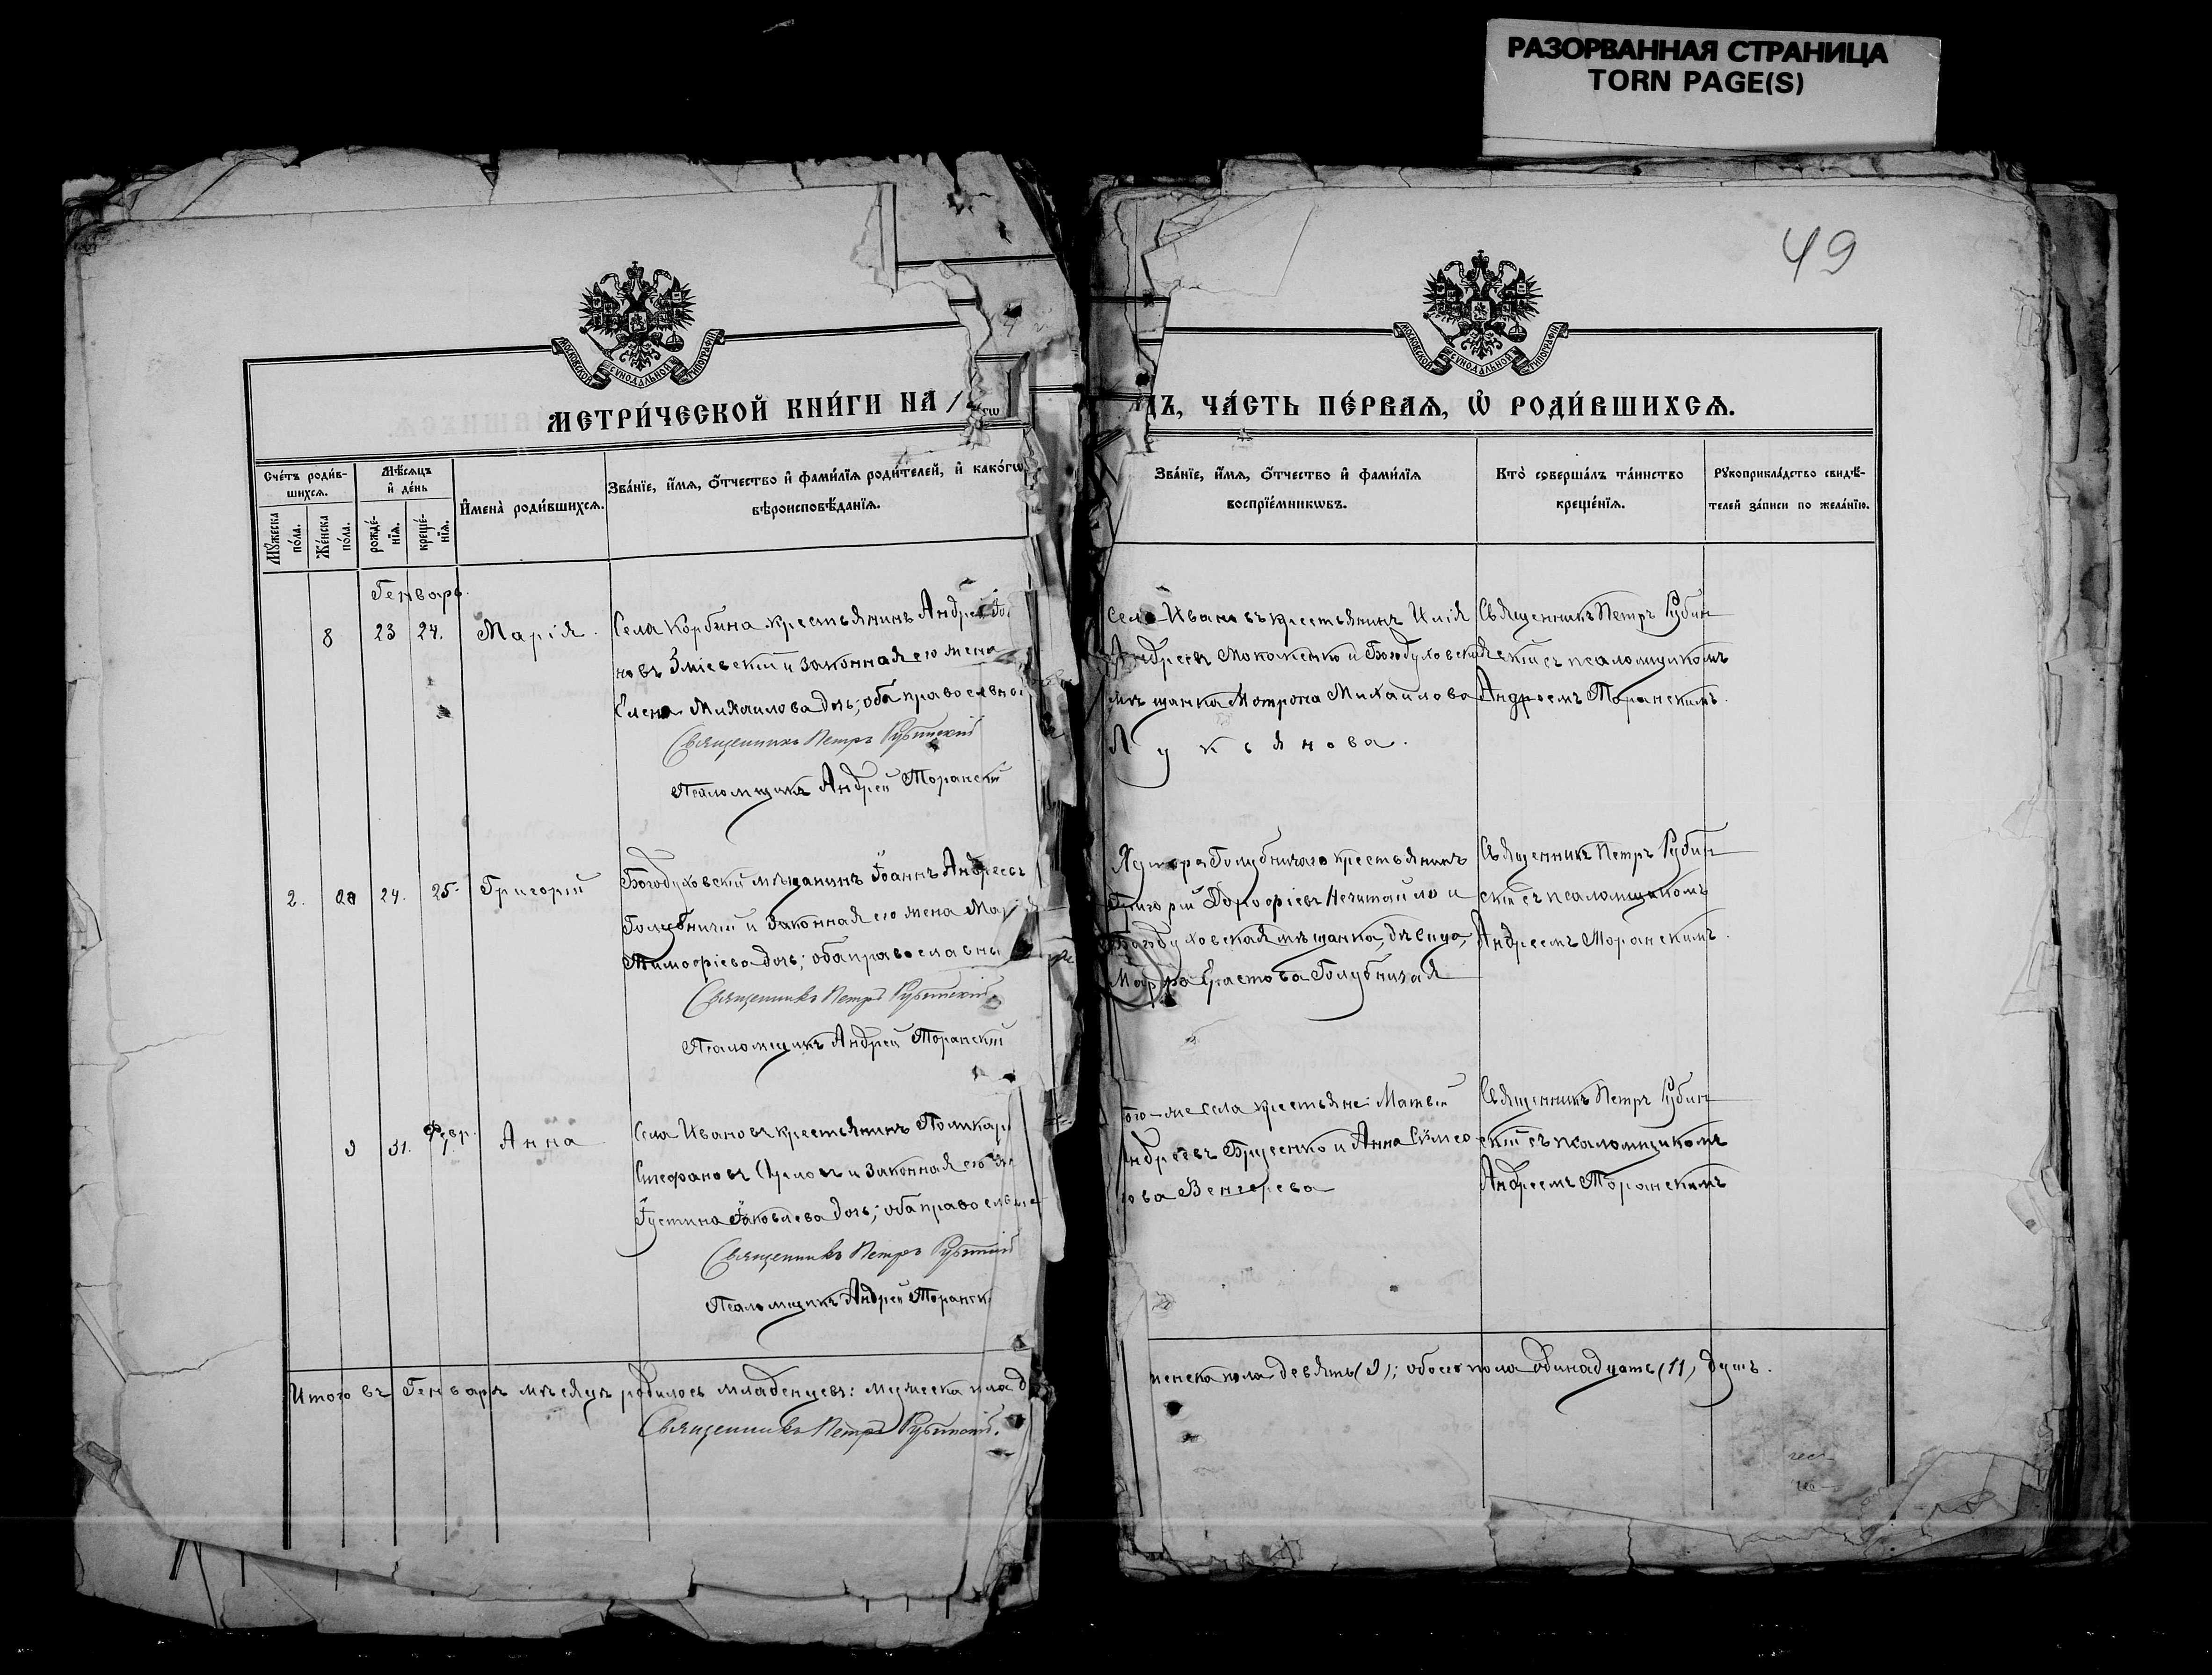 РАЗОРВАННАЯ СТРАНИЦА
TORN PAGE(S)
49
МОСКОВСКОЙ СѴНОДАЛЬНОЙ ТИПОГРАФІИ
МОСКОВСКОЙ СѴНОДАЛЬНОЙ ТИПОГРАФІИ
МЕТРИ́ЧЕСКОЙ КНИ́ГИ НА 1
ДЪ, ЧА́СТЬ ПЕ́РВАѦ, Ѡ҆ РОДИ́ВШИХСѦ.
Сче́тъ роди́вшихсѧ.
Мꙋ́жеска по́ла.
Же́нска по́ла.
Мѣ́сѧцъ и҆ де́нь
рожде́нїѧ.
креще́нїѧ.
И҆мена̀ роди́вшихсѧ.
Зва́нїе, и҆́мѧ, ѻ҆́тчество и҆ фами́лїѧ роди́телей, и҆ како́гѡ
вѣроисповѣ́данїѧ.
Зва́нїе, и҆́мѧ, ѻ҆́тчество и҆ фами́лїѧ
воспрїе́мникѡвъ.
Кто̀ соверша́лъ та́инство
креще́нїѧ.
Рꙋкоприкла́дство свидѣ́телей за́писи по жела́нїю.
Генварь.
8 23 24. Марія.
Села Корбина крестьянинъ Андрей
новъ Зміевскій и законная его жена
Елена Михаилова дочь; оба православные
Священникъ Петръ Рубинскій
Псаломщикъ Андрей Торанскій
Села Ивановъ крестьянинъ Илія
Андреевъ Мокоженко и Богодуховская
мѣщанка Мотрона Михаилова
Лукьянова.
Священникъ Петръ Рубин
скій съ псаломщикомъ
Андреемъ Торанскимъ.
2. 24. 25. Григорій
Богодуховскій мѣщанинъ Іоаннъ Андреевъ
Голубничій и законная его жена Мар
Тимофіева дочь; оба православны
Священникъ Петръ Рубинскій
Псаломщикъ Андрей Торанскій
Хутора Голубничаго крестьянинъ
Григорій Дорофіевъ Нечитайло и
Богодуховская мѣщанка, дѣвица,
Марфа Ерастова Голубничая
Священникъ Петръ Рубин
скій съ псаломщикомъ
Андреемъ Торанскимъ.
9 31. Февр. 1. Анна
Села Ивановъ крестьянинъ Поликар
Стефановъ и законная его
Іустина Іаковлева дочь; оба православные
Священникъ Петръ Рубинскій
Псаломщикъ Андрей Торанск
того-же села крестьяне: Матвей
Андреевъ Брусенко и Анна Сѵмео
нова Венгерева
Священникъ Петръ Рубин
скій съ псаломщикомъ
Андреемъ Торанскимъ
Итого въ Генваръ мѣсяцѣ родилось младенцевъ: мужеска пола д
женска пола девять (9); обоего пола одинадцать (11) душъ.
Священникъ Петръ Рубинскій.